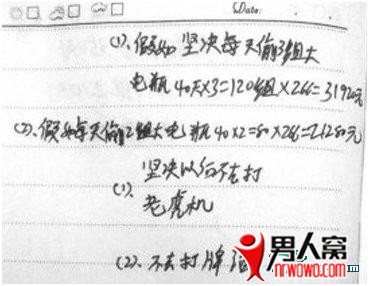 Date:
(1)、假如坚决每天偷3组大
电瓶40天×3=120组×266=31920元
(2)、假如每天偷2组大电瓶40×2=80×266=21280元
坚决以后不去打
(1)、
老虎机
(2)、不去打牌
男人窝
nrwowo.com